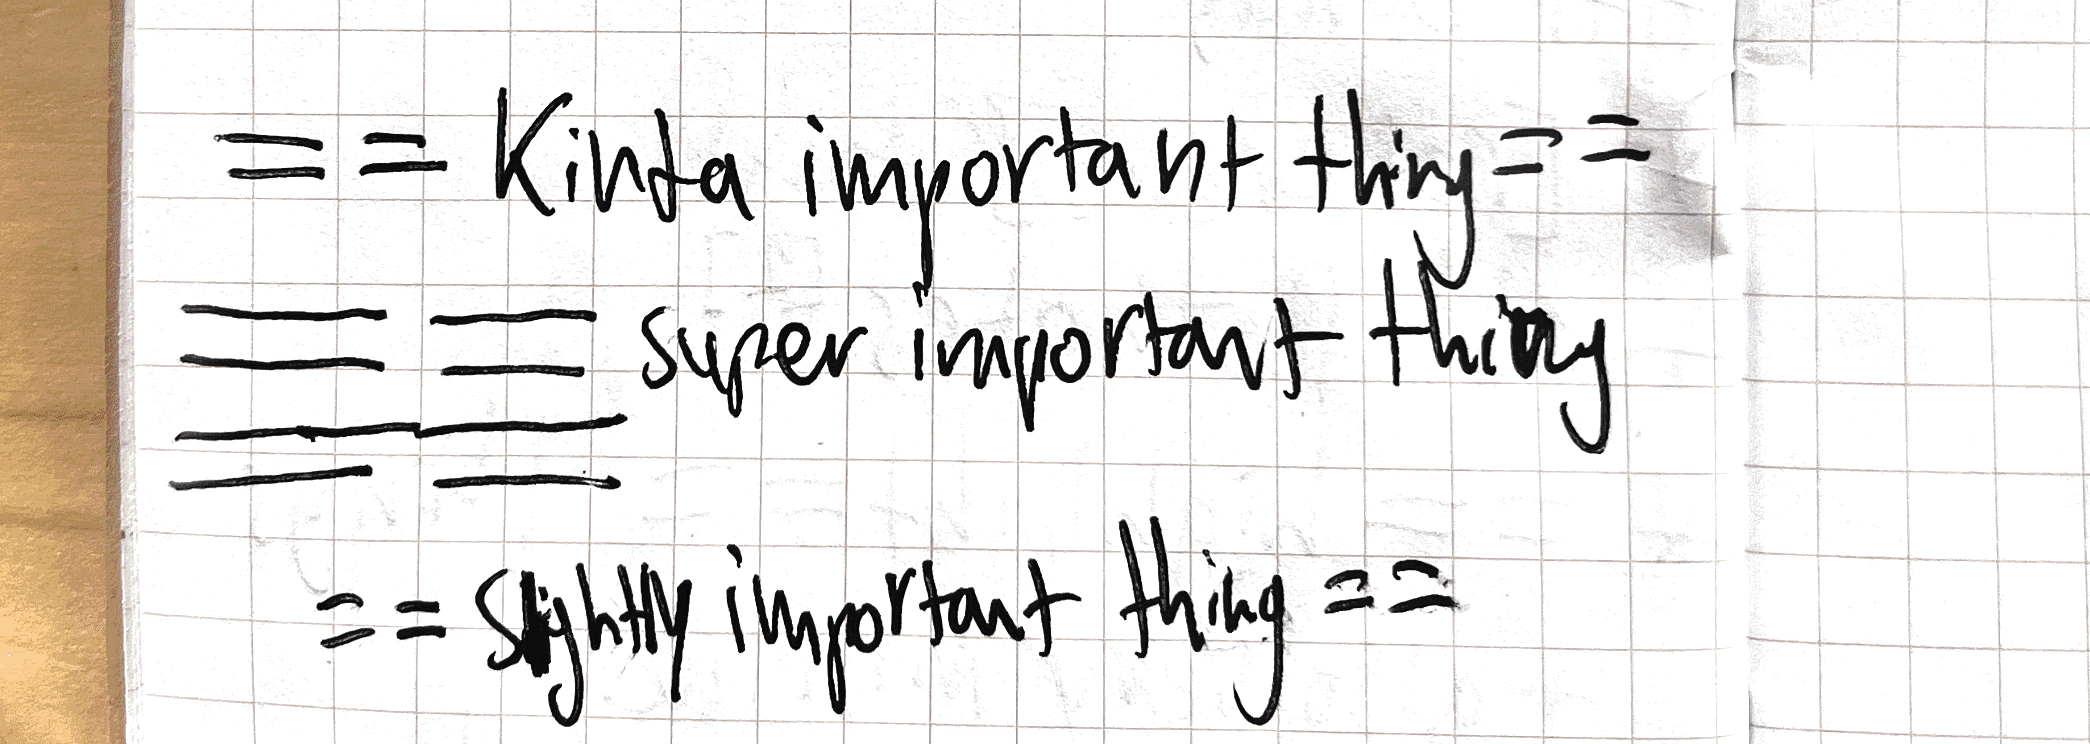 == Kinta important thing ==
== == super important thing
== slightly important thing ==